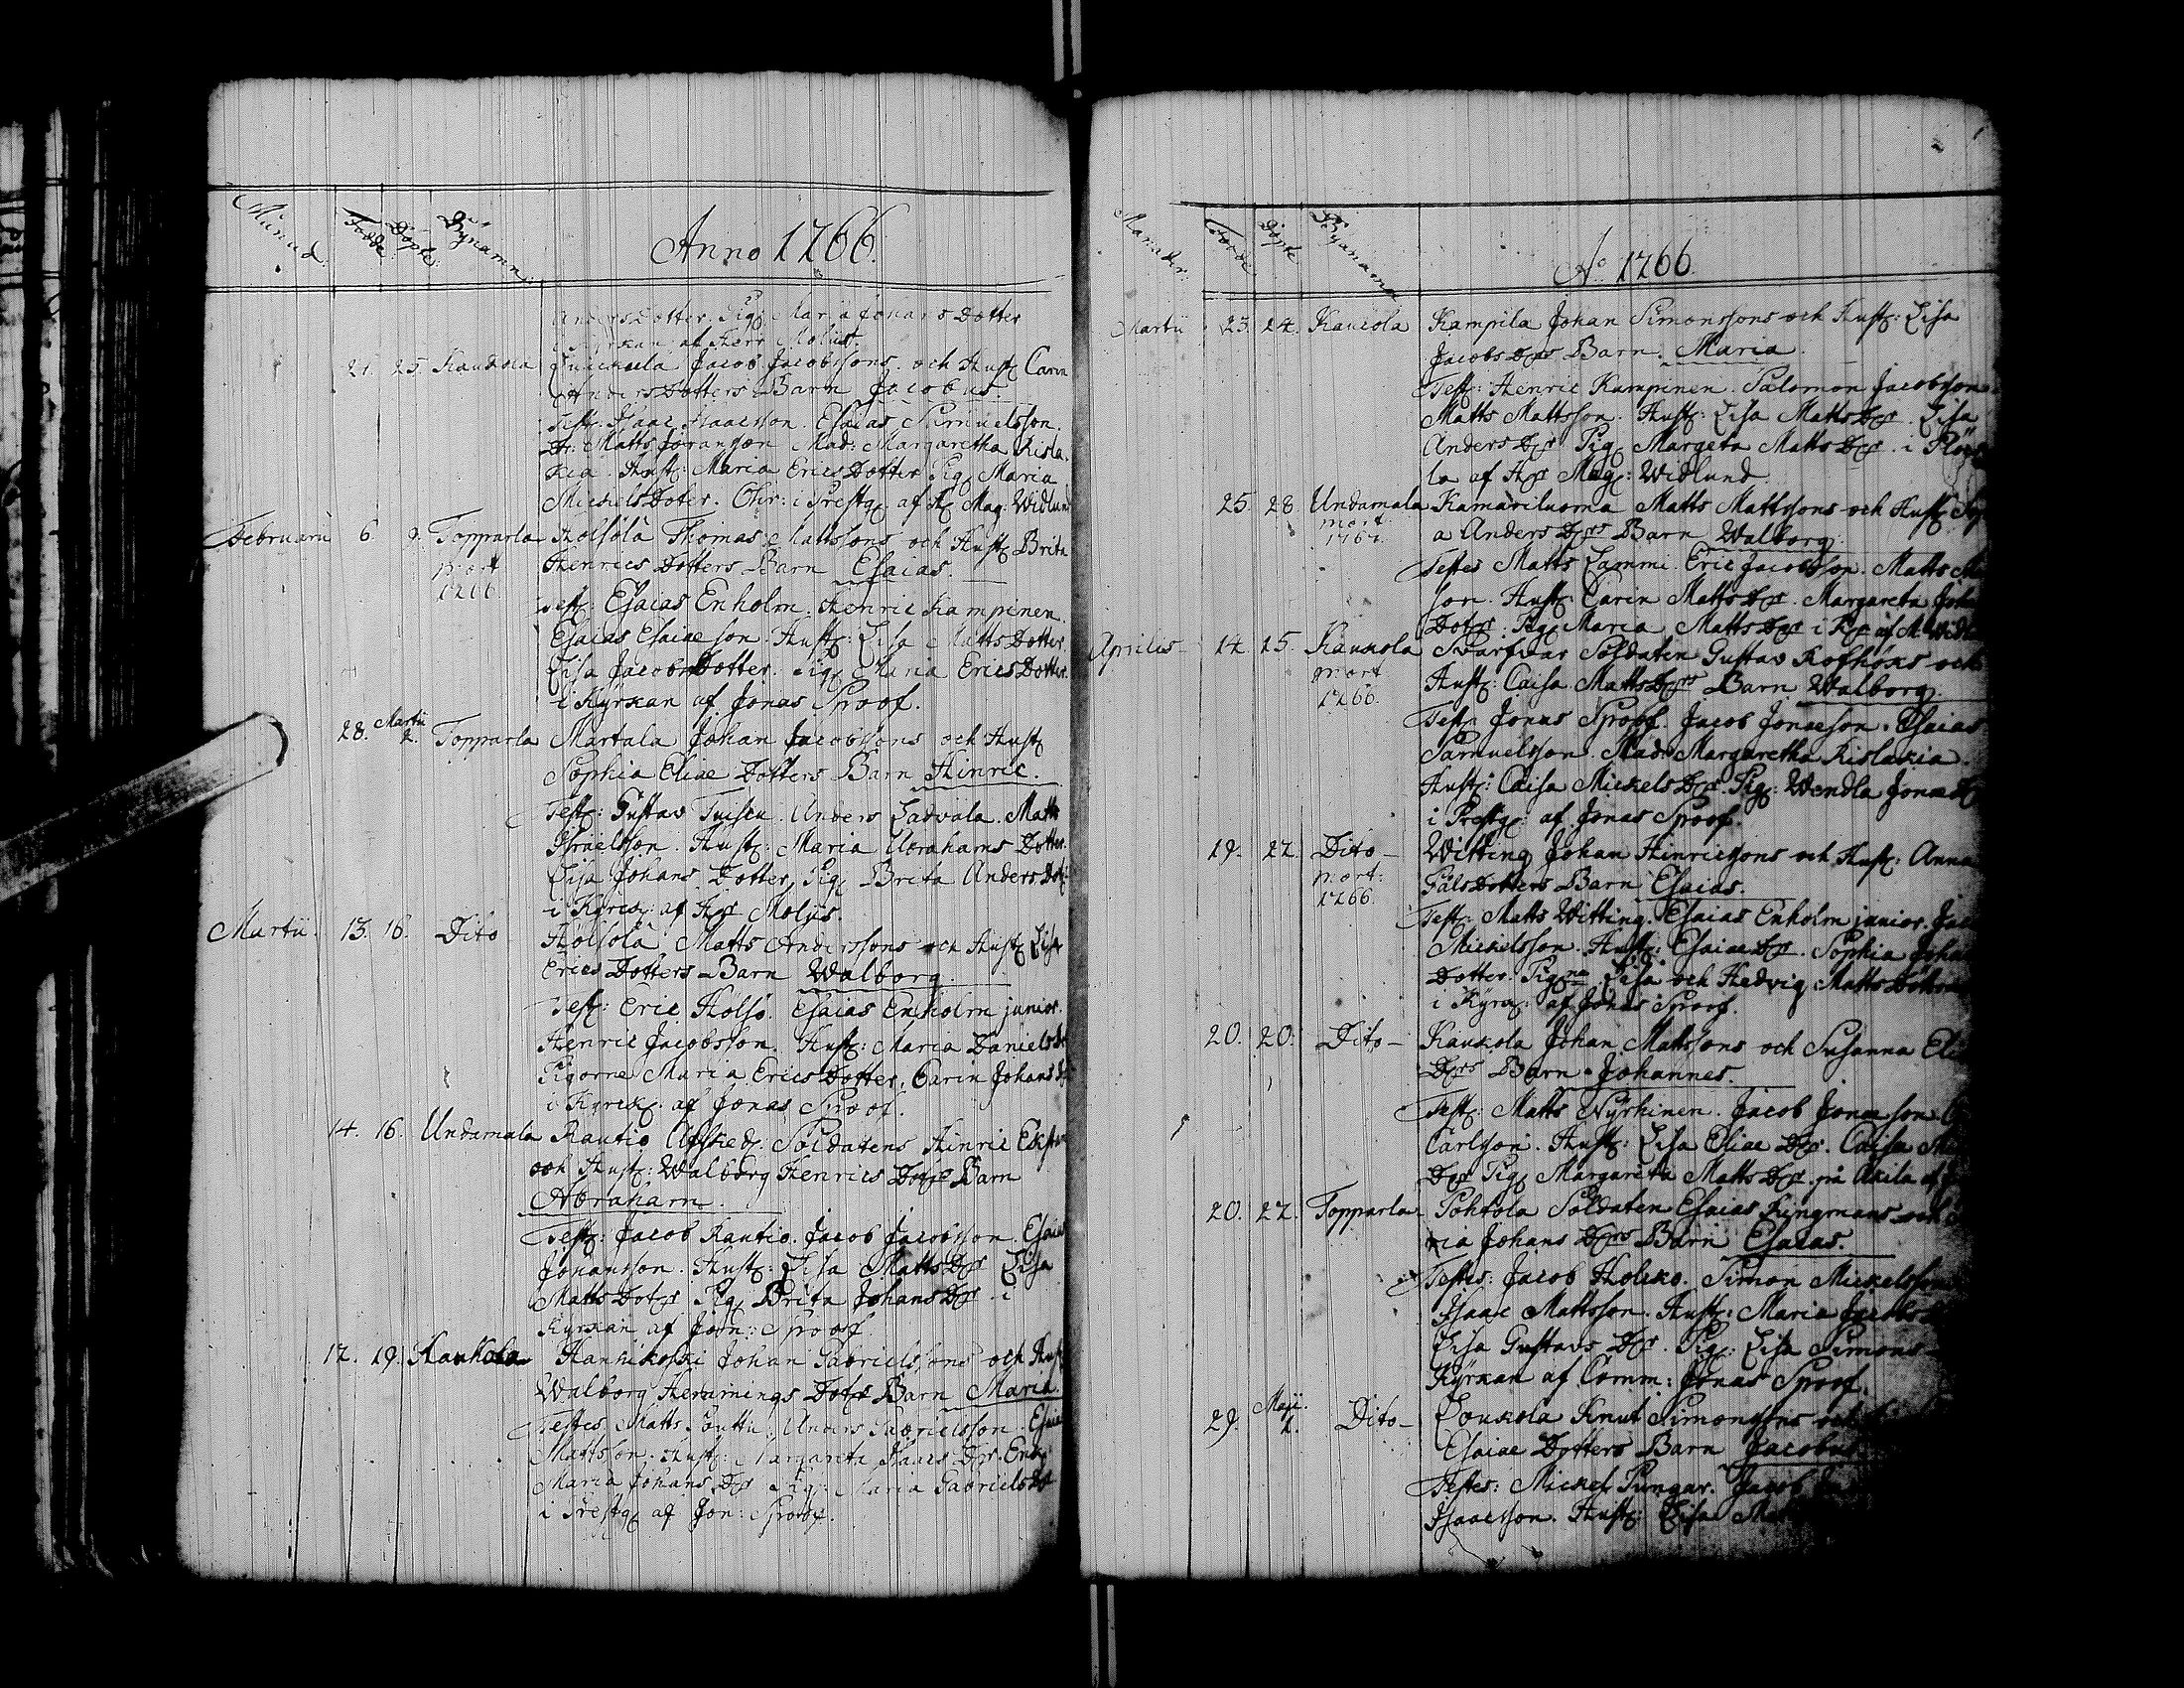 Månad. Födde Döpte Bÿnamn
Anno 1766.
Anders Dotter. Pig: Maria Johans Dotter
i Kyrkan af Herr Molius.
21. 25. Kaukola Jacob Jacobssons och Hust: Carin
Anders Dotters Barn Jacobus.
Test: Isaac Isaacsson. Esaias Samuelsson.
Dr: Matts Mad: Margaretha Kisla-
kia. Hust: Maria Erics Dotter Pig Maria
Mickels Doter. Ohr: i Prestg: af H Mag: Widlund
Februarii 6 9. Topparla Holsola Thomas Mattssons och Hust Brita
mort Henrics Dotters Barn Esaias.
1766.
Test: Esaias Enholm. Henric Kampinen.
Esaias Esaiaeson. Hust: Lisa Matts Dotter.
Lisa Jacobs Dotter. Pig Maria Erics Dotter.
i Kyrkan af Jonas Proof.
28. Martii 2. Topparla Martala Johan Jacobssons och Hust
Sophia Eliae Dotters Barn Hinric.
Test: Gustav Tuiscu. Anders Ladvala. Matts
Israelsson. Hust: Maria Abrahams Dotter.
Lisa Johans Dotter, Pig Brita Anders Dot:
i Kyrck: af Hr Molijs.
Martii. 13. 16. Dito Holsola Matts Anderssons och Hust Lisa
Erics Dotters Barn Walborg
Test: Eric Holso. Esaias Enholm junior.
Henric Jacobsson. Hust: Maria Daniels
Pigorne Maria Erics Dotter. Carin Johans
i Kyrck: af Jonas Proof.
14. 16. Undamala Rautio Afsked: Soldatens Hinric
och Hust: Walborg Henrics Dotrs Barn
Abraham.
Test: Jacob Rautio. Jacob Jacobsson. Esaias
Johansson. Hust: Lisa Matts Dr Lisa
Matts Dotr Pig Brita Johans Dr i
Kyrkan af Jon: Proof.
17. 19. Kaukola Hankikoski Johan Gabrielssons och Hust
Walborg Hemmings Dotrs Barn Maria.
Testes Matts Anders Gabrielsson. Esaias
Mattsson. Hust: Margareta Isaacs Dr. Enk:
Maria Johans Dr Pig: Maria Gabriels Dr
i Prestg af Jon: Proof.
Månader. Födde Döpte Bynamna
Ao 1766.
Martii 23. 24. Kaucola Kampila Johan Simonssons och Hust: Lisa
Jacobs Drs Barn. Maria.
Test: Henric Kampinen. Salomon Jacobsson
Matts Mattsson. Hust: Lisa Matts Dr. Lisa
Anders Dr Pig Margeta Matts Dr. i
la af Hr Mag: Widlund
25. 28 Undamala Kamariluoma Matts Mattssons och Hust
mort: a Anders Drs Barn Walborg
1767.
Testes Matts Lammi. Eric Jacobsson. Matts
son. Hust: Carin Matts Dr. Margareta
Dotr: Pig Maria Matts Dr i af M: Widl
Aprilis 14. 15. Kaukola Svarfvar Soldaten Gustav och
mort Hust: Caisa Matts Drs Barn Walborg.
1766.
Test: Jonas Proof. Jacob Jonaeson. Esaias
Samuelsson. Mad: Margaretha Kislakia.
Hust: Caisa Mickels Dr. Pig: Wendla Jonae
i Prestg: af Jonas Proof.
19. 27. Dito Witting Johan Hinricssons och Hust: Anna
mort: Påls Dotters Barn Esaias.
1766.
Test: Matts Witting. Esaias Enholm junior.
Mickelsson. Hust: Esaiae Dr. Sophia
Dotter. Pigne Lisa och Hedvig Matts
i Kyrk: af Jonas Proof.
20. 20. Dito Kaukola Johan Mattssons och Susanna
Drs Barn Johannes.
Test: Matts Nyrhinen. Jacob Jonaeson
Carlsson. Hust: Lisa Eliae Dr. Caisa
Dr Pig Margareta Matts Dr på Akila af
20. 27. Topparla Pohtola Soldaten Esaias Kungmans och
ria Johans Drs Barn Esaias.
Testes: Jacob Holcko. Simon Mickelsson
Isaac Mattsson. Hust: Maria Jacobs
Lisa Gustavs Dr. Pig: Lisa Simons
Kyrkan af Comm: Jonas Proof.
29. Maji. 1. Dito Loukola Knut Simonssons och
Esaiae Dotters Barn Jacobus
Testes: Mickel Pungar. Jacob
Isaacsson. Hust: Lisa